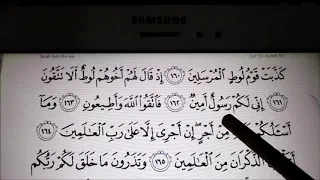 SAMSUNG
كَذَّبَتْ قَوْمُ لُوطٍ ٱلْمُرْسَلِينَ ١٦٠ إِذْ قَالَ لَهُمْ أَخُوهُمْ لُوطٌ أَلَا تَتَّقُونَ
١٦١ إِنِّى لَكُمْ رَسُولٌ أَمِينٌ ١٦٢ فَٱتَّقُوا۟ ٱللَّهَ وَأَطِيعُونِ ١٦٣ وَمَآ
أَسْـَٔلُكُمْ مِنْ أَجْرٍ إِنْ أَجْرِىَ إِلَّا عَلَىٰ رَبِّ ٱلْعَـٰلَمِينَ ١٦٤
أَتَأْتُونَ ٱلذُّكْرَانَ مِنَ ٱلْعَـٰلَمِينَ ١٦٥ وَتَذَرُونَ مَا خَلَقَ لَكُمْ رَبُّكُم